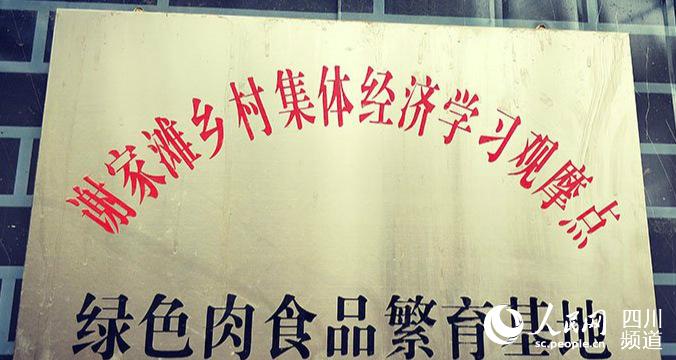 谢家滩乡村集体经济学习观摩点
绿色肉食品繁育基地
人民网 四川
sc.people.cn 频道